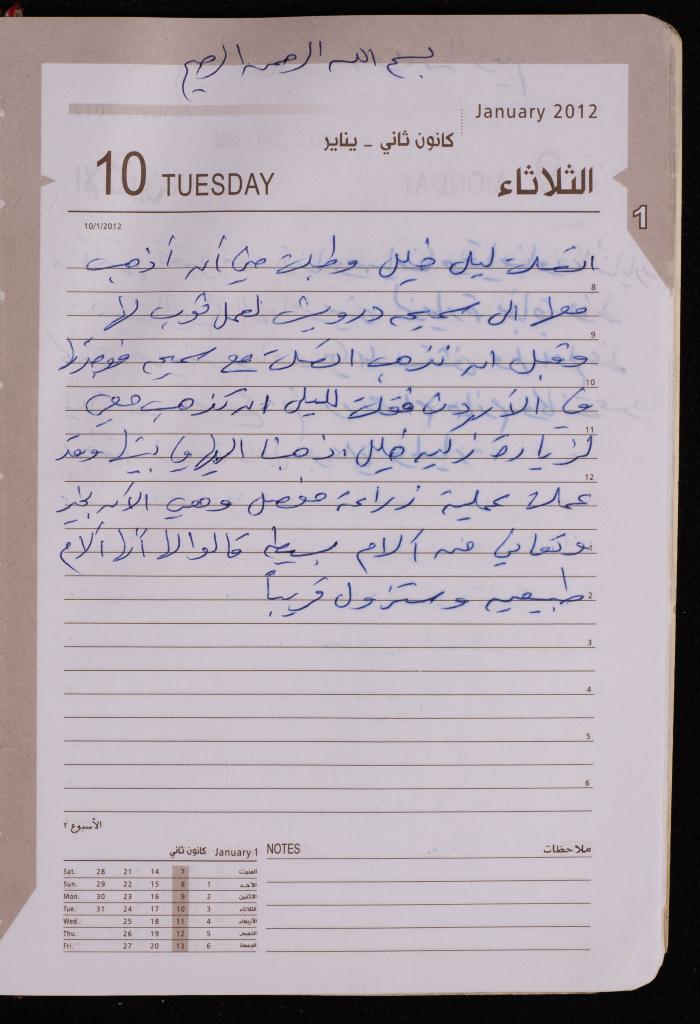 بسم الله الرحمن الرحيم
January 2012
كانون ثاني - يناير
10 TUESDAY
الثلاثاء
1
10/1/2012
اتصلت ليلى خليل وطلبت مني أن أذهب
8
معها الى سميحه درويش لعمل ثوب لها
9
وقبل ان نذهب اتصلت مع سميح فوجدتها
10
في الأردن فقلت لليلى ان تذهب معي
11
لزيارة زليخه خليل، ذهبنا اليها في بيتها وقد
12
عملت عملية زراعة مفصل وهي الآن بخير
1
وتعاني من آلام بسيطه قالوا لها أنها آلام
2
طبيعيه وستزول قريباً
3
4
5
6
الأسبوع ٢
كانون ثاني January 1
Sat. 28 21 14 7 السبت
Sun. 29 22 15 8 1 الأحد
Mon. 30 23 16 9 2 الإثنين
Tue. 31 24 17 10 3 الثلاثاء
Wed. 25 18 11 4 الأربعاء
Thu. 26 19 12 5 الخميس
Fri. 27 20 13 6 الجمعة
NOTES ملاحظات